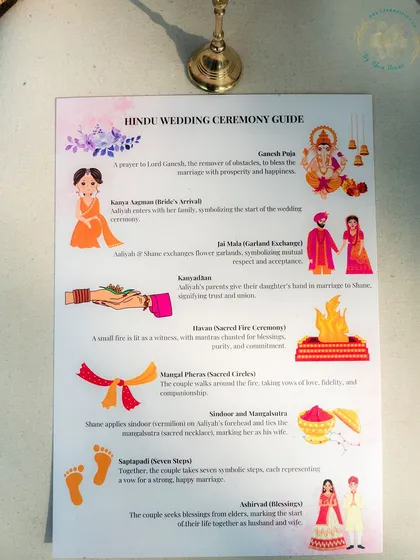 HINDU WEDDING CEREMONY GUIDE
Ganesh Puja
A prayer to Lord Ganesh, the remover of obstacles, to bless the
marriage with prosperity and happiness.
Kanya Aagman (Bride's Arrival)
Aaliyah enters with her family, symbolizing the start of the wedding
ceremony.
Jai Mala (Garland Exchange)
Aaliyah & Shane exchanges flower garlands, symbolizing mutual
respect and acceptance.
Kanyadaan
Aaliyah's parents give their daughter's hand in marriage to Shane,
signifying trust and union.
Havan (Sacred Fire Ceremony)
A small fire is lit as a witness, with mantras chanted for blessings,
purity, and commitment.
Mangal Pheras (Sacred Circles)
The couple walks around the fire, taking vows of love, fidelity, and
companionship.
Sindoor and Mangalsutra
Shane applies sindoor (vermilion) on Aaliyah's forehead and ties the
mangalsutra (sacred necklace), marking her as his wife.
Saptapadi (Seven Steps)
Together, the couple takes seven symbolic steps, each representing
a vow for a strong, happy marriage.
Ashirvad (Blessings)
The couple seeks blessings from elders, marking the start
of their life together as husband and wife.